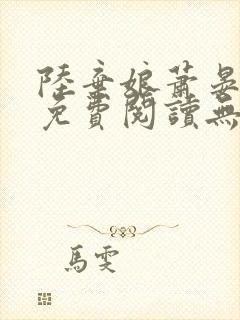 陸棄娘蕭晏
免費閱讀無
馬雯